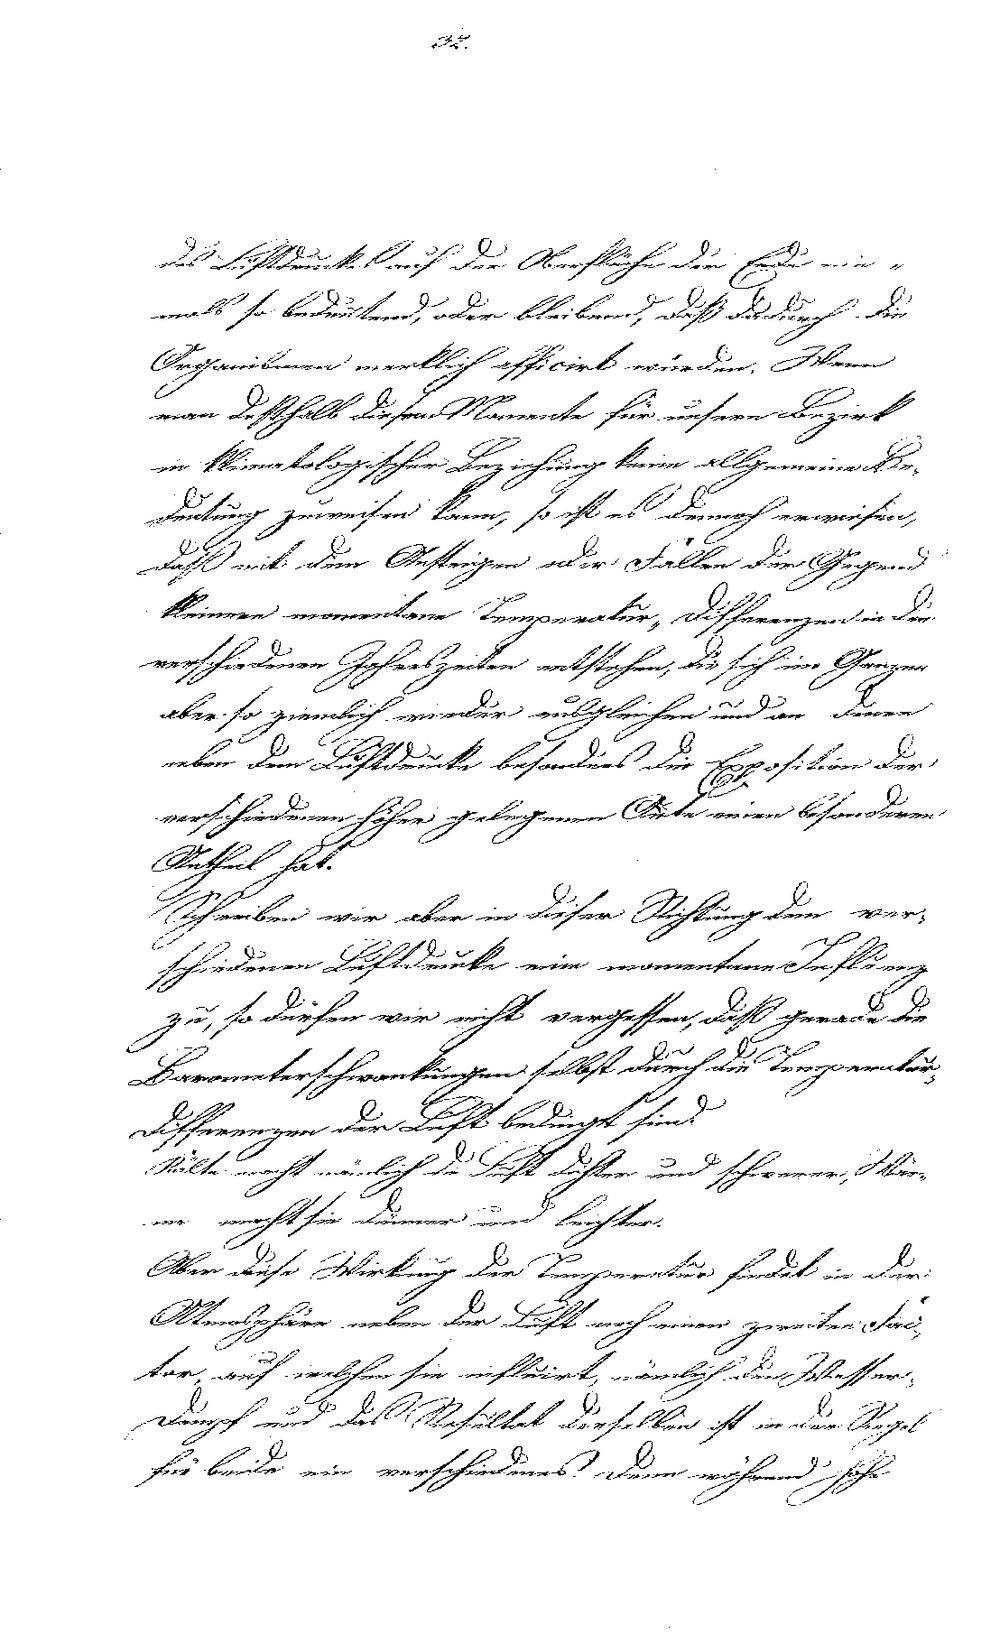 32.
des Luftdruckes auf der Oberfläche der Erde nie-
mals so bedeutend, oder bleibend, daß dadurch die
Organismen merklich afficirt würden. Wenn
man deßhalb diesem Momente für unsern Bezirk
in klimatologischer Beziehung keine allgemeine Be-
deutung zuweisen kann, so ist es dennoch erwiesen,
daß mit dem Ansteigen oder Fallen der Gegend
kleinere momentane Temperatur-Differenzen in den
verschiedenen Jahreszeiten entstehen, die sich im Ganzen
aber so ziemlich wieder ausgleichen und an denen
neben dem Luftdrucke besonders die Exposition der
verschiedenen höher gelegenen Orte einen besonderen
Antheil hat.
Schreiben wir aber in dieser Richtung dem ver-
schiedenen Luftdrucke eine momentane Influenz
zu, so dürfen wir nicht vergessen, daß gerade die
Barometerschwankungen selbst durch die Temperatur-
Differenzen der Luft bedingt sind.
Kälte macht nämlich die Luft dichter und schwerer, Wär-
me macht sie dünner und leichter.
Aber diese Wirkung der Temperatur findet in der
Atmosphäre neben der Luft noch einen zweiten Fac-
tor, auf welchen sie influirt, nämlich den Wasser-
dampf und das Resultat derselben ist in der Regel
für beide ein verschiedenes. Denn während hohe